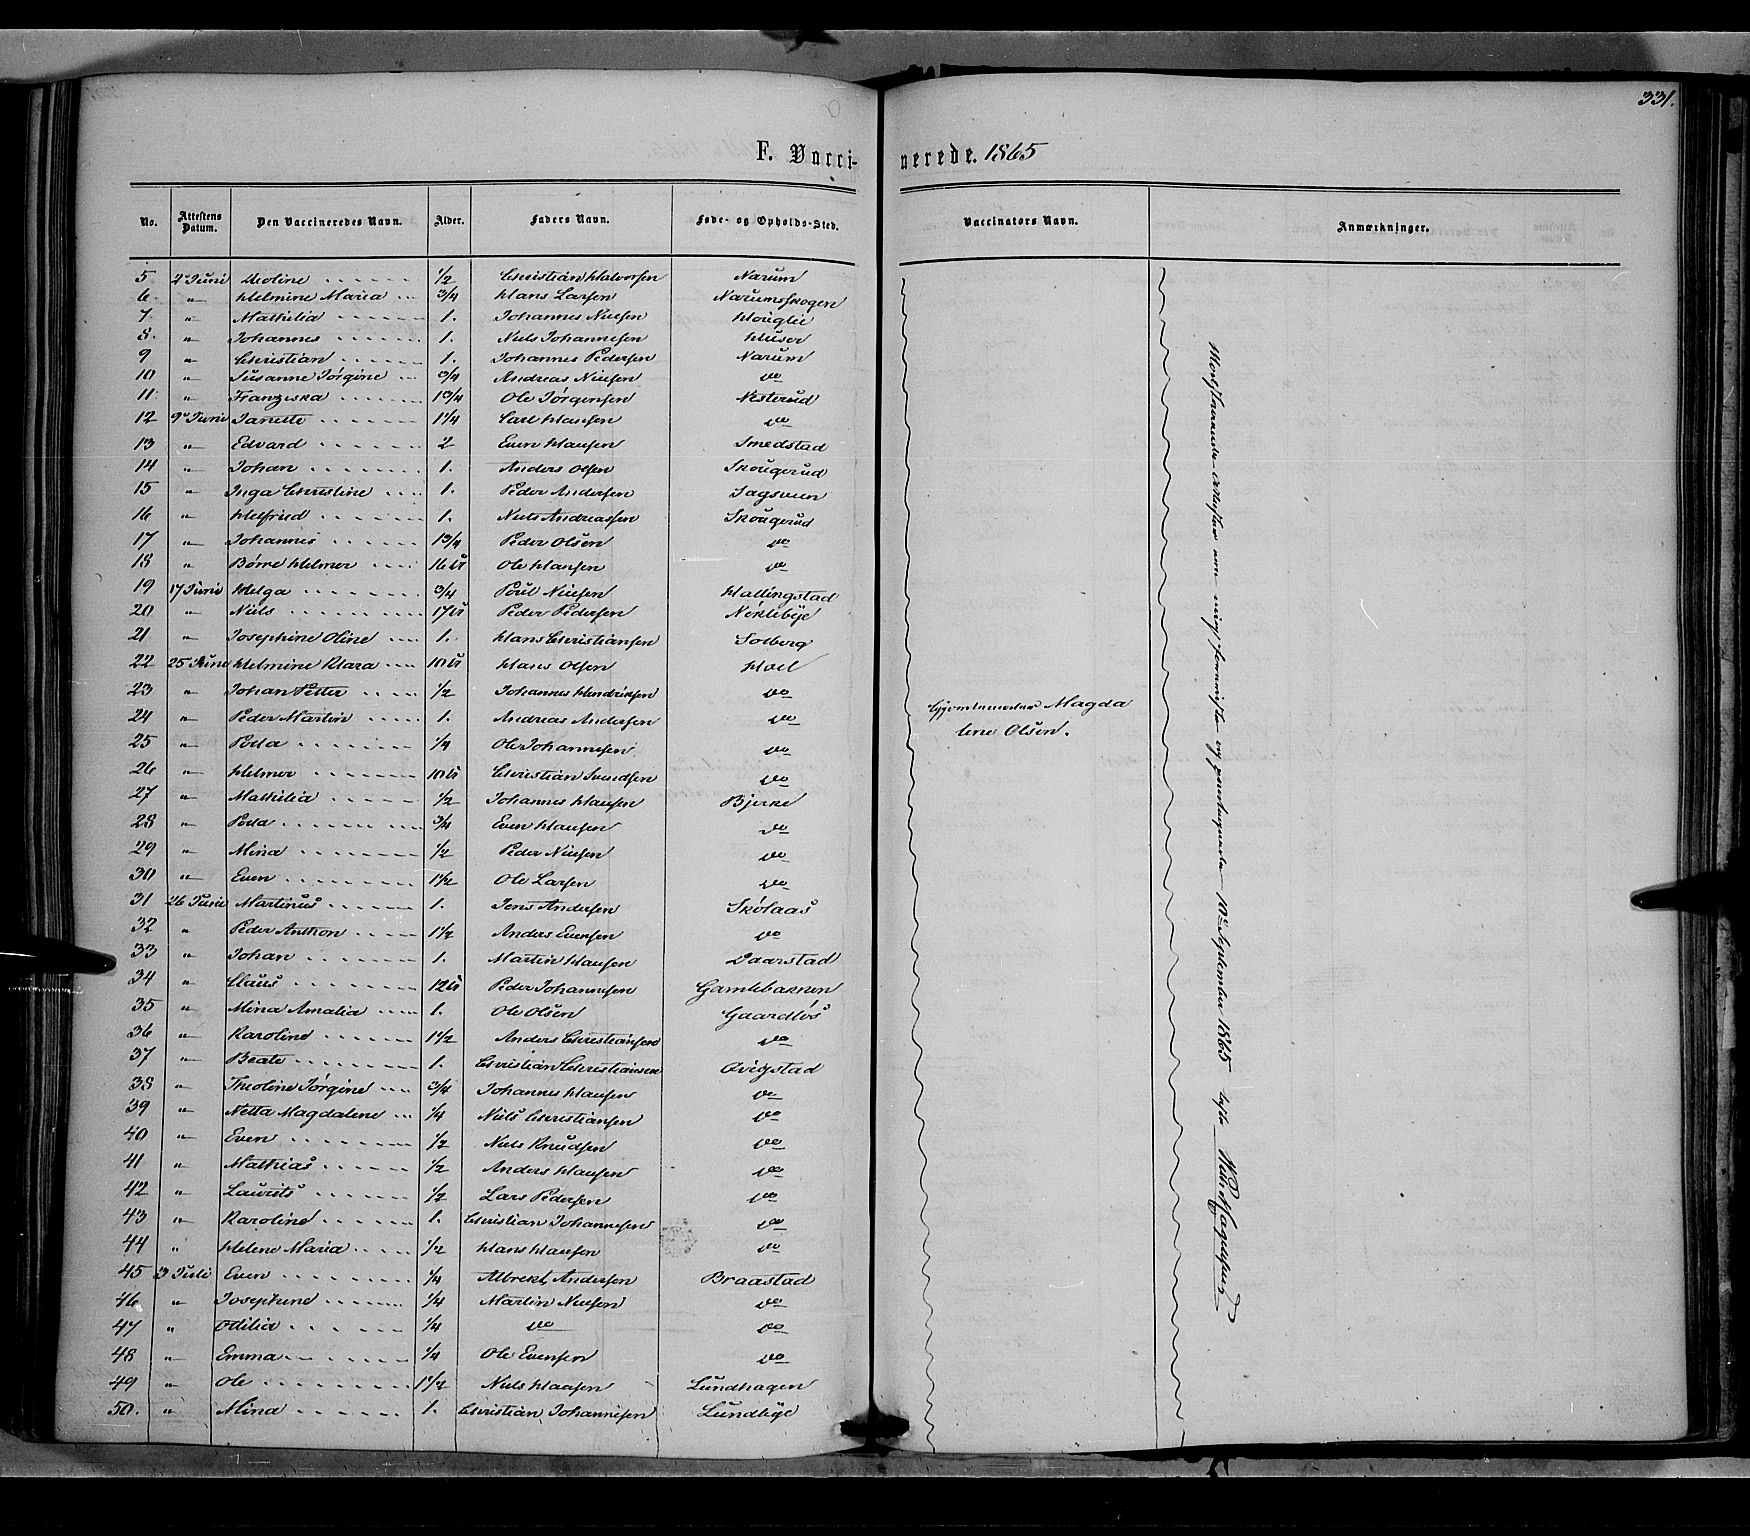 331.
F. Vacci- nerede. 1865
No. Attestens Datum. Den Vaccineredes Navn. Alder. Faders Navn. Føde- og Opholds-Sted. Vaccinators Navn. Anmærkninger.
5 2 Juni ½ Christian Halvorsen Narum
6. " Helmine Maria ¾ Hans Larsen Narumsskogen
7. " Mathilia 1. Johannes Nielsen Houglie
8. " Johannes 1. Niels Johannesen Huser
9 " Christian 1. Johannes Pedersen Narum
10 " Susanne Jørgine ¾ Andreas Nielsen do
11. " Franziska 1¾ Ole Jørgensen Nesterud
12 9 Juni Janette 1¼ Carl Hansen do
13 " Edvard 2 Even Hansen Smedstad
14 " Johan 1. Anders Olsen Skougerud
15 " Inga Christine 1. Peder Andersen Sagsveen
16 " Helfried 1. Niels Andreassen Skougerud
17 " Johannes 1¾ Peder Olsen do
18 " Børre Helmer 16 U Ole Hansen do
19 17 Juni Helga ¾ Poul Nielsen Hallingstad
20 " Niels 17 U Peder Pedersen Nøklebye
21 " Josephine Oline 1. Hans Christiansen Solberg
22 25 Juni Helmine Klara 10 U Hans Olsen Hoel
23 " Johan Petter ½ Johannes Hendriksen do
24 " Peder Martin 1. Andreas Andersen do
25 " ¼ Ole Johannesen do
26 " Helmer 10 U Christian Svendsen do
27 " Mathilia ½ Johannes Hansen Bjerke
28 " ¾ Even Hansen do
29 " Mina ½ Peder Nielsen do
30 " Even 1½ Ole Larsen do
31 26 Juni Martinus 1. Jens Andersen Skolaas
32 " Peder Anthon 1½ Anders Evensen do
33 " Johan 1. Martin Hansen Daarstad
34 " Claus 12 U Peder Johannesen Gamlebakken
35 " Mina Amalia 1. Ole Olsen Gaardløs
36 " Karoline 1½ Anders Christiansen do
37 " Beate 1. Christian Christiansen Øvigstad
38 " Theoline Jørgine ¾ Johannes Hansen do
39 " Netta Magdalene ¼ Niels Christiansen do
40 " Even ½ Niels Knudsen do
41 " Mathias ½ Anders Hansen do
42 " Laurits ½ Lars Pedersen do
43 " Karoline 1. Christian Johannesen do
44 " Helene Maria ½ Hans Hansen do
45 3 Juli Even ¼ Albrekt Andersen Braastad
46 " Josephine ¼ Martin Nielsen do
47 " Otilia ¼ do do
48 " Emma ¼ Ole Evensen do
49 " Ole 1½ Niels Hansen Lundhagen
50. " Mina 1. Christian Johannesen Lundbye
Magda
lene Olsen.
10 September 1865